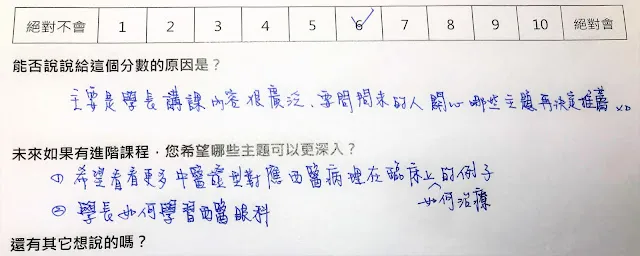 絕對不會 1 2 3 4 5 6 7 8 9 10 絕對會
能否說說給這個分數的原因是？
主要是學長講課內容很廣泛、要問問來的人關心哪些主題再決定推薦 XD
未來如果有進階課程，您希望哪些主題可以更深入？
① 希望看看更多中醫證型對應西醫病理在臨床上的例子
如何治療
② 學長如何學習西醫眼科
還有其它想說的嗎？